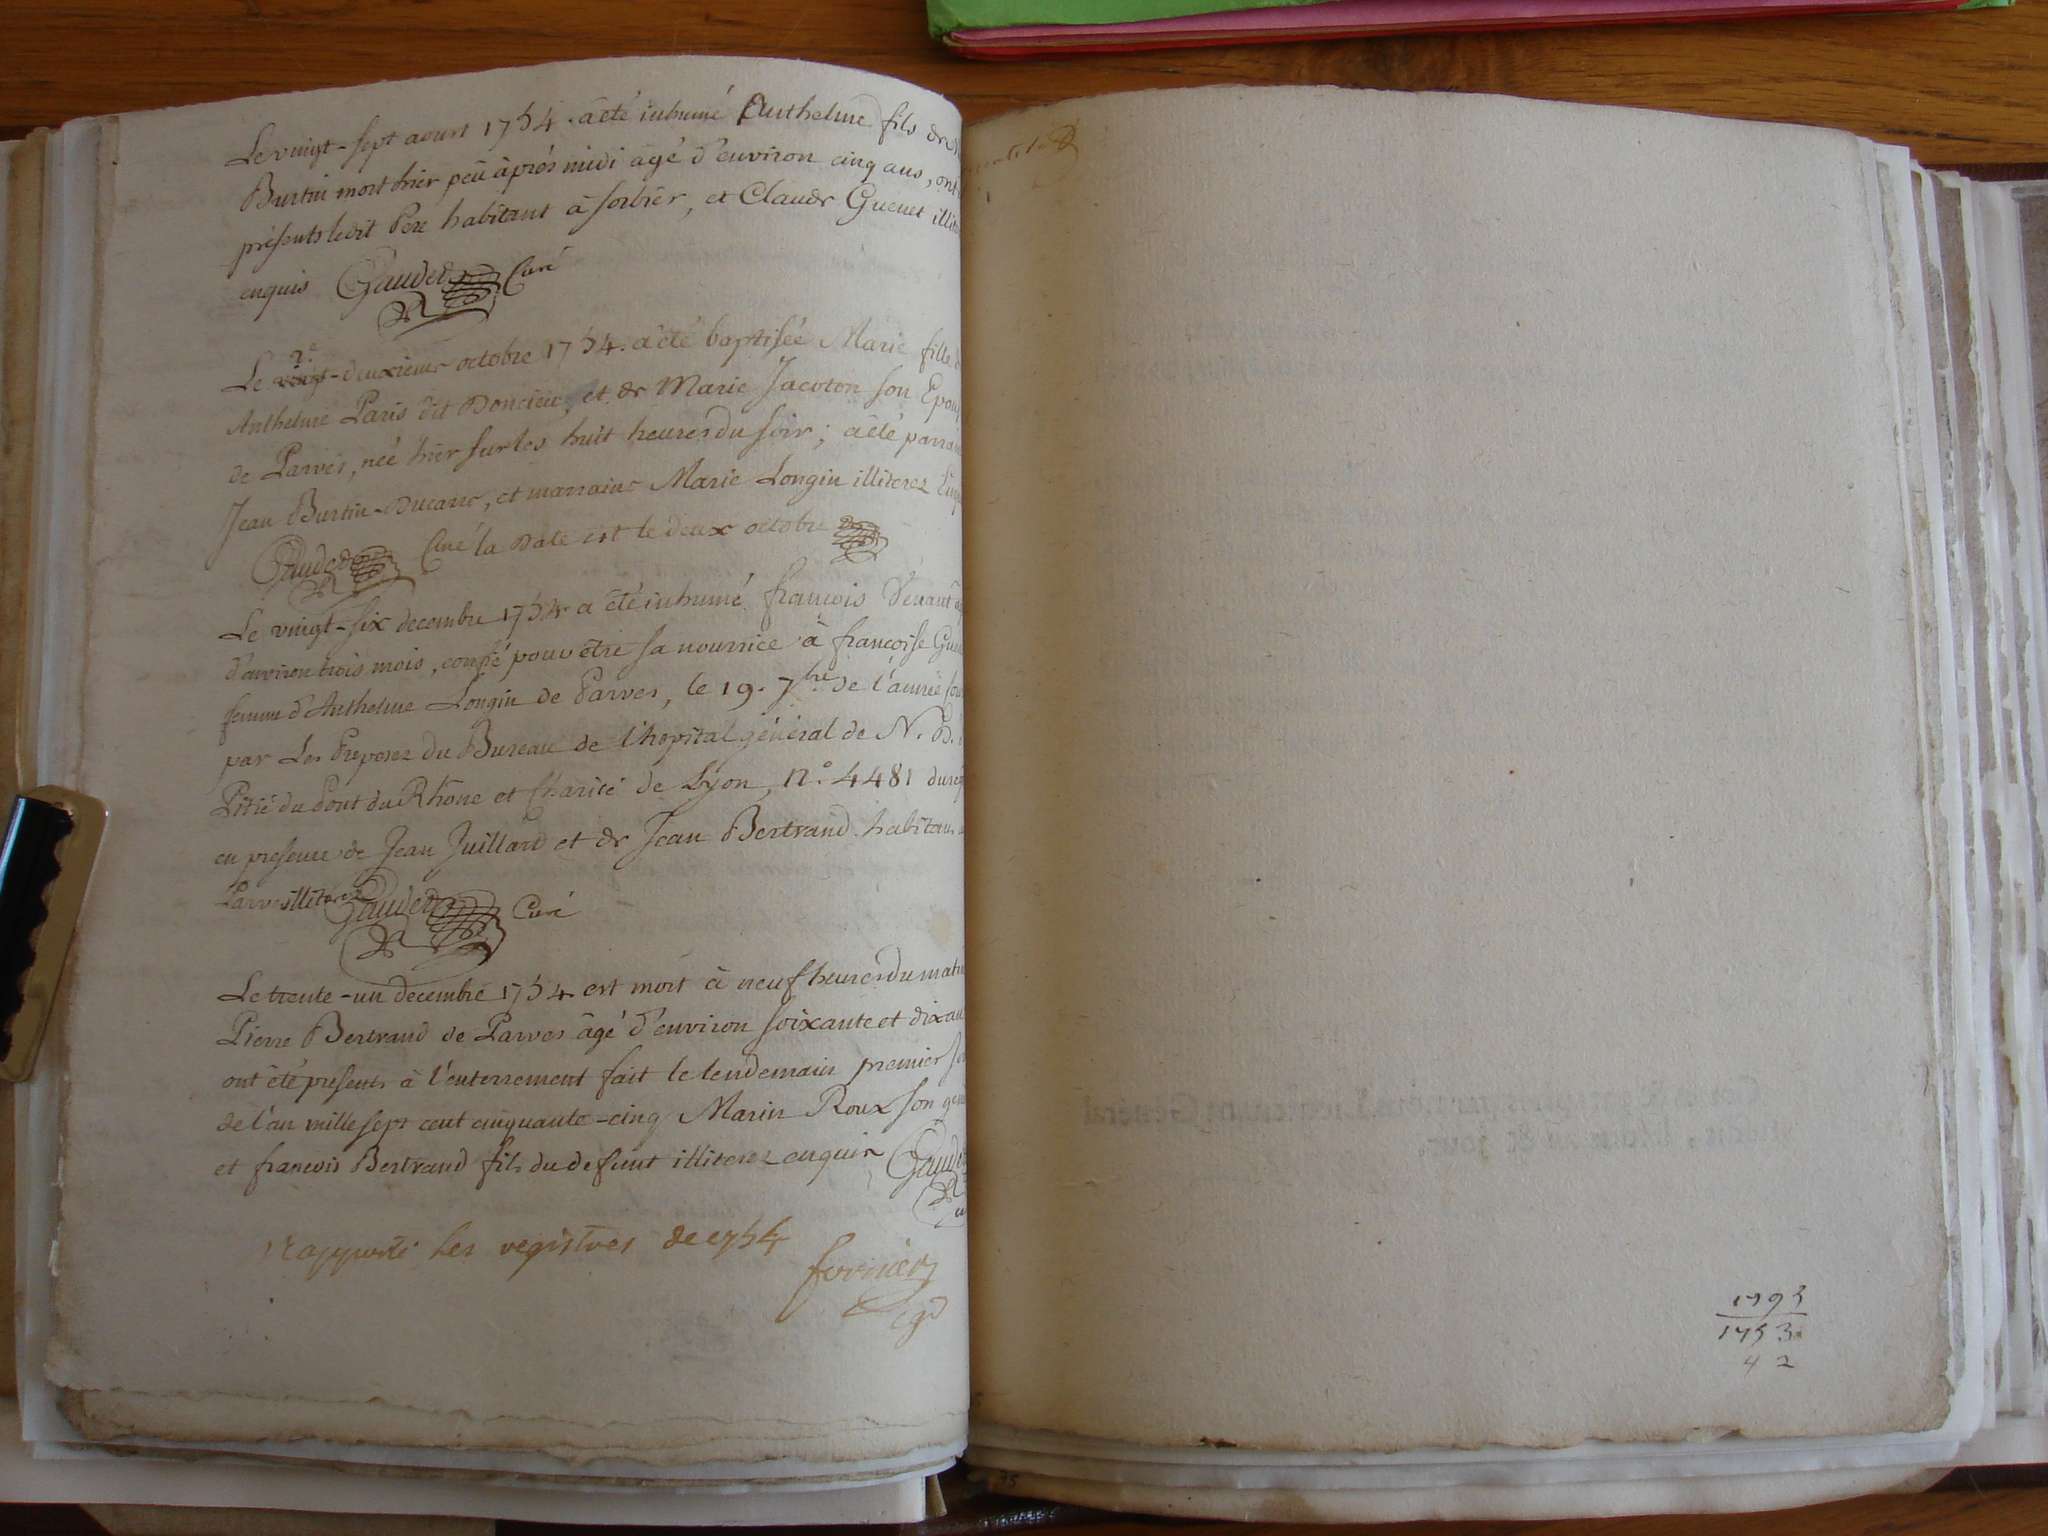 Le vingt-sept aoust 1754. a été inhumé Anthelme fils de
Burtin mort hier peu àprés midi âgé d'environ cinq ans, ont
présents ledit Pere habitant à sorbier, et Claude Guenet
enquis Gaudet Curé
Le vingt-deuxieme octobre 1754. a été baptisée Marie fille
Anthelme Paris dit Doncieu, et de Marie Jacoton son
de Parves, née hier sur les huit heures du soir; a été
Jean Burtin-Ducarre, et marraine Marie Longin illiterez
Gaudet Curé la Date est le deux octobre
Le vingt-six decembre 1754 a été inhumé francois
d'environ trois mois, confié pour être sa nourrice à francoise
femme d'Anthelme Longin de Parves, le 19. 7bre de l'année
par Les Preposez du Bureau de l'hopital général de N. D.
Pitié du Pont du Rhône et Charité de Lyon, n.° 4481
en presence de Jean Juillard et de Jean Bertrand habitans
Parves illiterez Gaudet Curé
Le trente-un decembre 1754 est mort à neuf heures du
Pierre Bertrand de Parves âgé d'environ soixante et dix
ont été presents à l'enterrement fait le lendemain premier
de l'an mille sept cent cinquante-cinq Marin Roux son
et francois Bertrand fils du defunt illiterez enquis
rapporté les registres de 1754
1793
1753
42